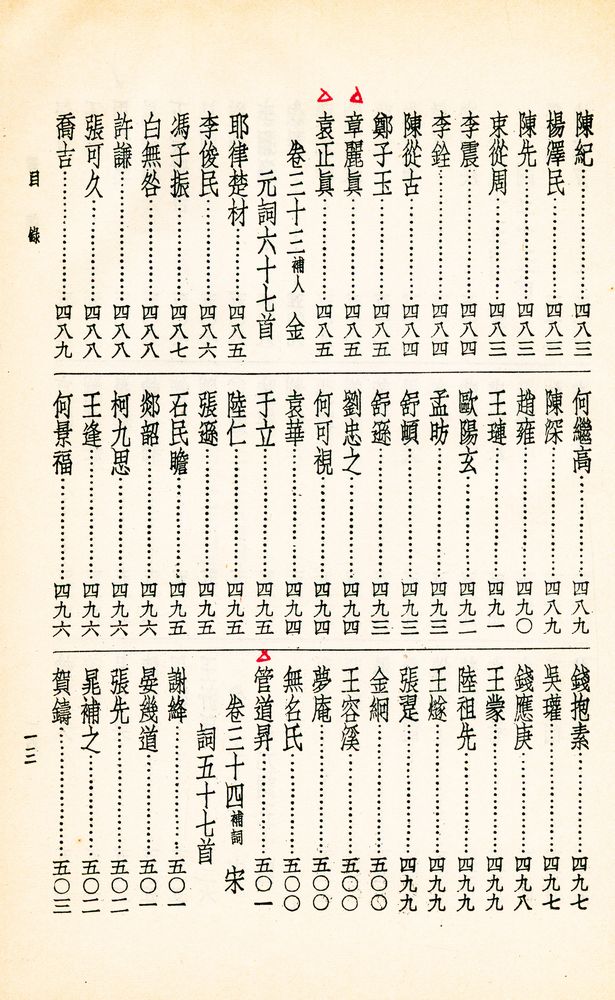 陳紀…………四八三
楊澤民…………四八三
陳先…………四八三
束從周…………四八三
李震…………四八四
李銓…………四八四
陳從古…………四八四
鄭子玉…………四八五
章麗眞…………四八五
袁正眞…………四八五
卷三十三補人 金
元詞六十七首
耶律楚材…………四八五
李俊民…………四八六
馮子振…………四八七
白無咎…………四八八
許謙…………四八八
張可久…………四八八
喬吉…………四八九
何繼高…………四八九
陳深…………四八九
趙雍…………四九〇
王璉…………四九一
歐陽玄…………四九二
孟昉…………四九三
舒頔…………四九三
舒遜…………四九三
劉忠之…………四九四
何可視…………四九四
袁華…………四九四
于立…………四九五
陸仁…………四九五
張遜…………四九五
石民瞻…………四九五
郯韶…………四九六
柯九思…………四九六
王逢…………四九六
何景福…………四九六
錢抱素…………四九七
吳瓘…………四九七
錢應庚…………四九八
王蒙…………四九九
陸祖先…………四九九
王燧…………四九九
張翨…………四九九
金絅…………五〇〇
王容溪…………五〇〇
夢庵…………五〇〇
無名氏…………五〇〇
管道昇…………五〇一
卷三十四補詞 宋
詞五十七首
謝絳…………五〇一
晏幾道…………五〇一
張先…………五〇二
晁補之…………五〇二
賀鑄…………五〇三
目錄
一三